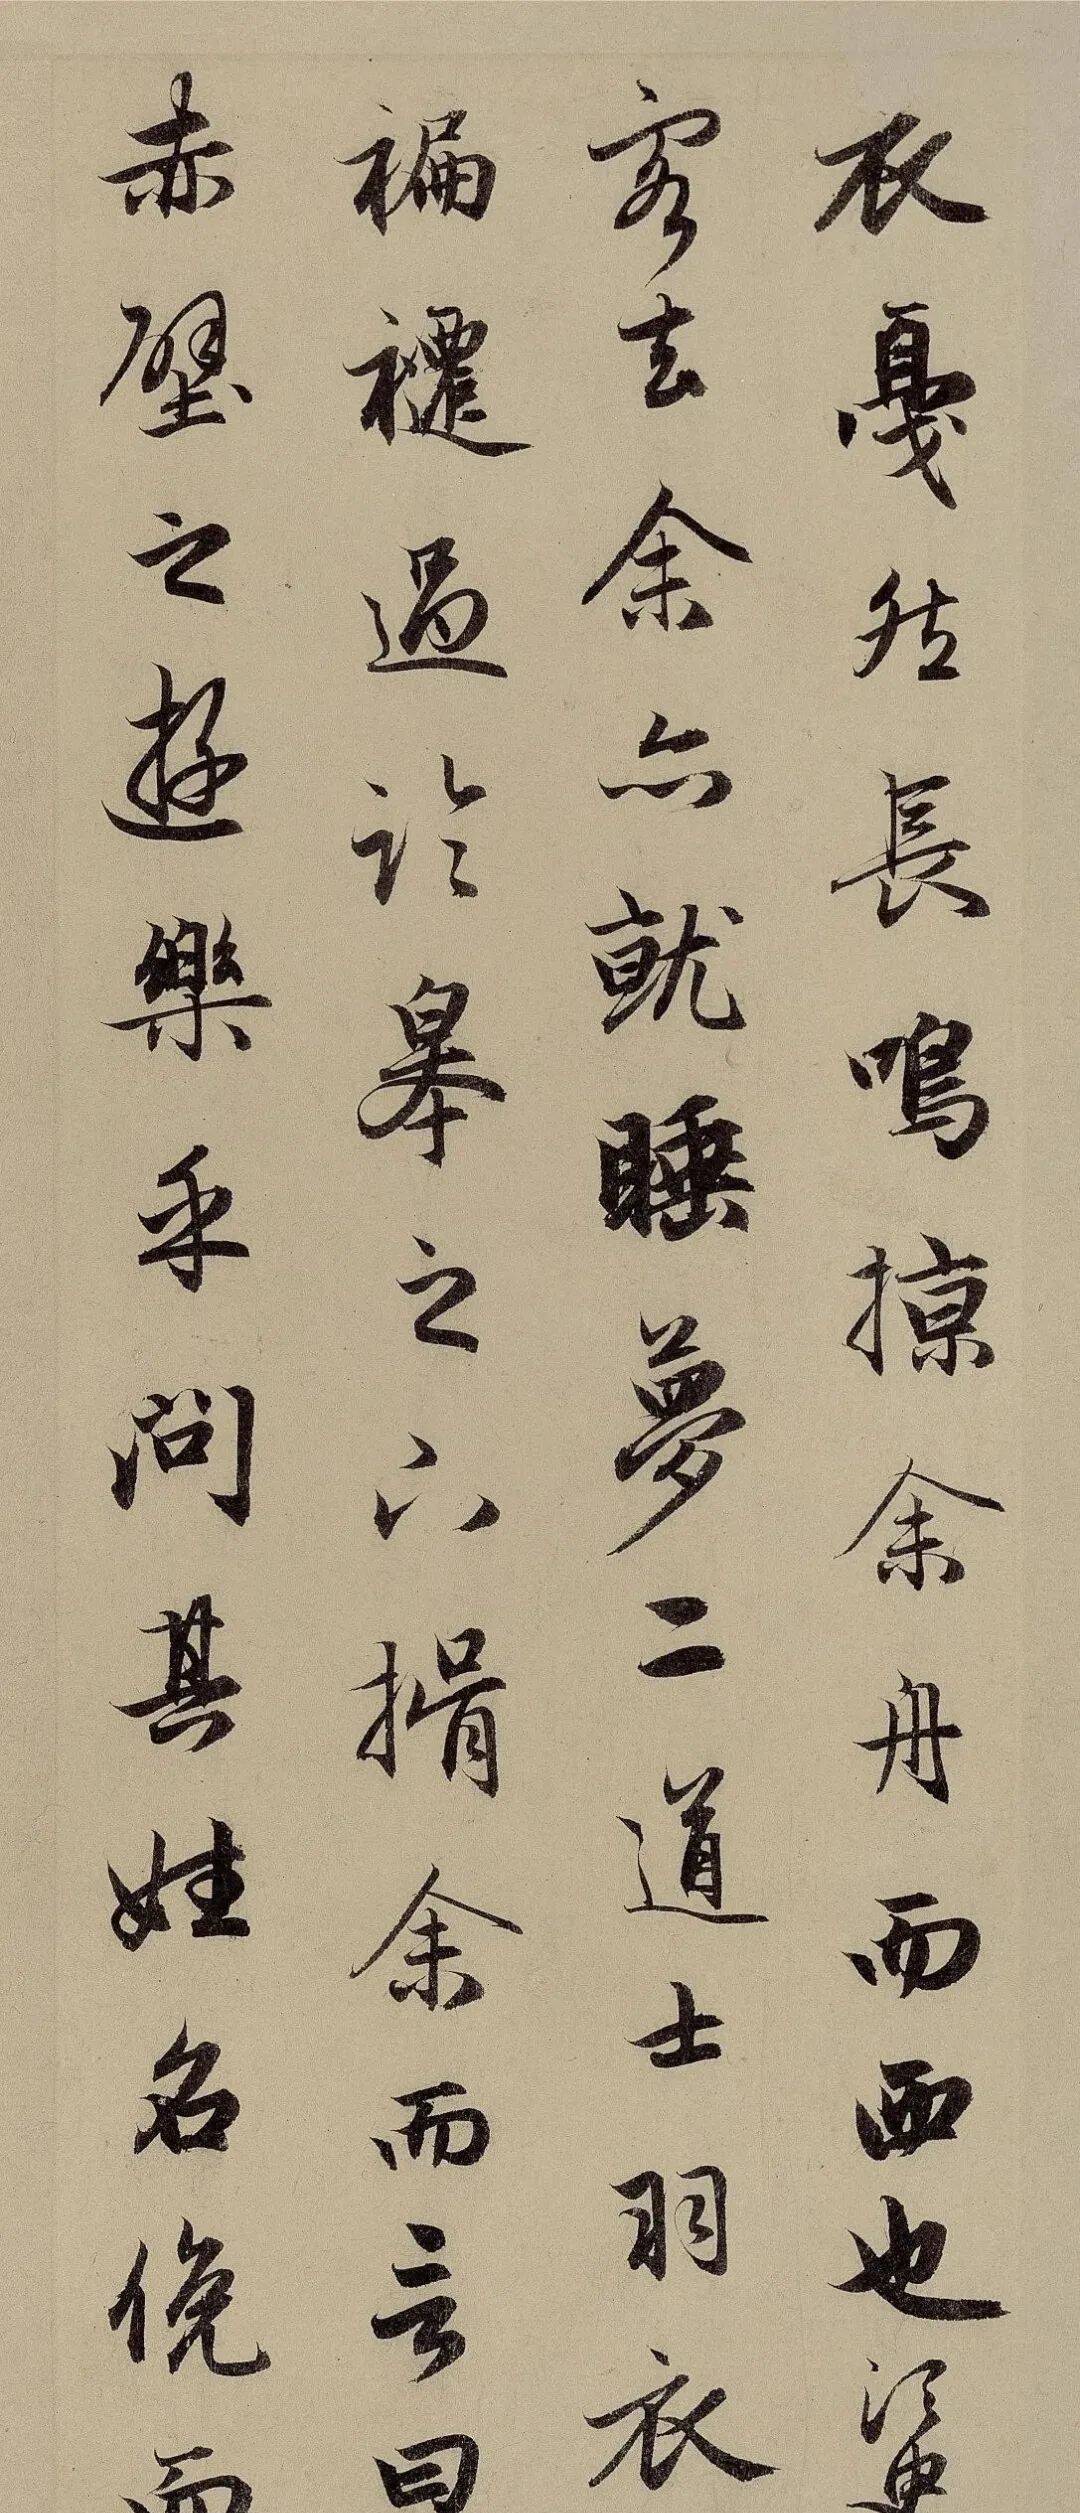 衣戛然長鳴掠余舟而西也須臾
客去余亦就睡夢二道士羽衣
褊褼過臨臯之下揖余而言曰
赤壁之遊樂乎問其姓名俛而